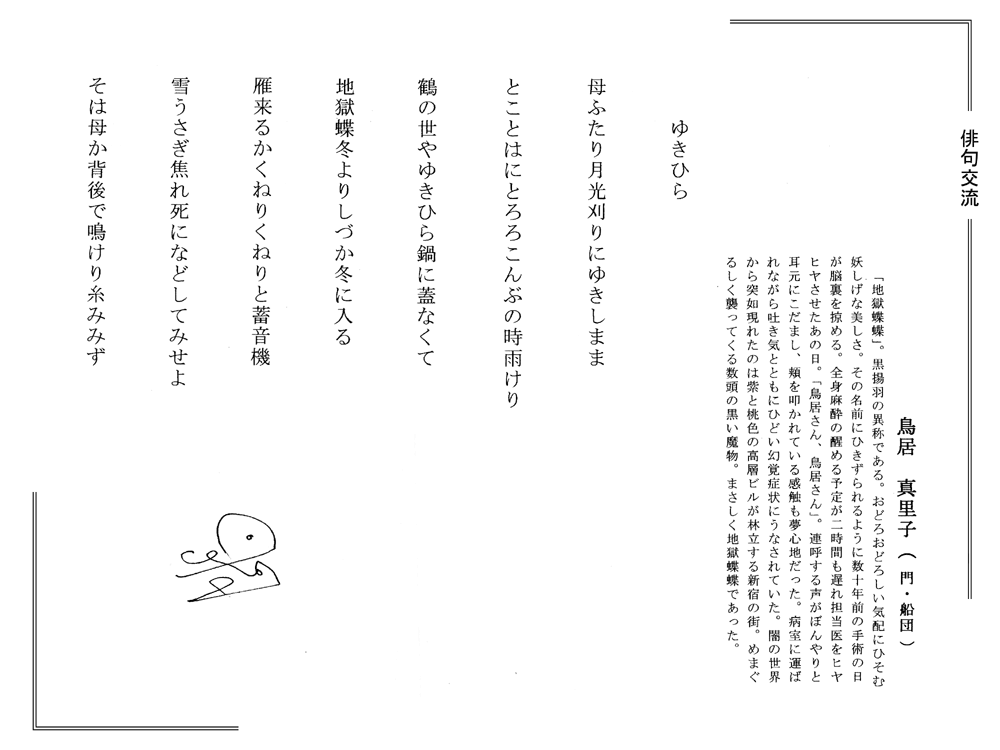 俳句交流
鳥居　真里子（門・船団）
「地獄蝶蝶」。黒揚羽の異称である。おどろおどろしい気配にひそむ
妖しげな美しさ。その名前にひきずられるように数十年前の手術の日
が脳裏を掠める。全身麻酔の醒める予定が二時間も遅れ担当医をヒヤ
ヒヤさせたあの日。「鳥居さん、鳥居さん」。連呼する声がぼんやりと
耳元にこだまし、頬を叩かれている感触も夢心地だった。病室に運ば
れながら吐き気とともにひどい幻覚症状にうなされていた。闇の世界
から突如現れたのは紫と桃色の高層ビルが林立する新宿の街。めまぐ
るしく襲ってくる数頭の黒い魔物。まさしく地獄蝶蝶であった。
ゆきひら
母ふたり月光刈りにゆきしまま
とことはにとろろこんぶの時雨けり
鶴の世やゆきひら鍋に蓋なくて
地獄蝶冬よりしづか冬に入る
雁来るかくねりくねりと蓄音機
雪うさぎ焦れ死になどしてみせよ
そは母か背後で鳴けり糸みみず